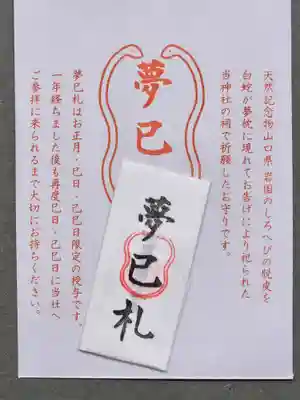 天然記念物山口県岩国のしろへびの脱皮を
白蛇が夢枕に現れてお告げにより祀られた
当神社の祠で祈願したお守りです。
夢巳
夢巳札
夢巳札はお正月・巳日・己巳日限定の授与です。
一年経ちました後も再度巳日・己巳日に当社へ
ご参拝に来られるまで大切にお持ちください。